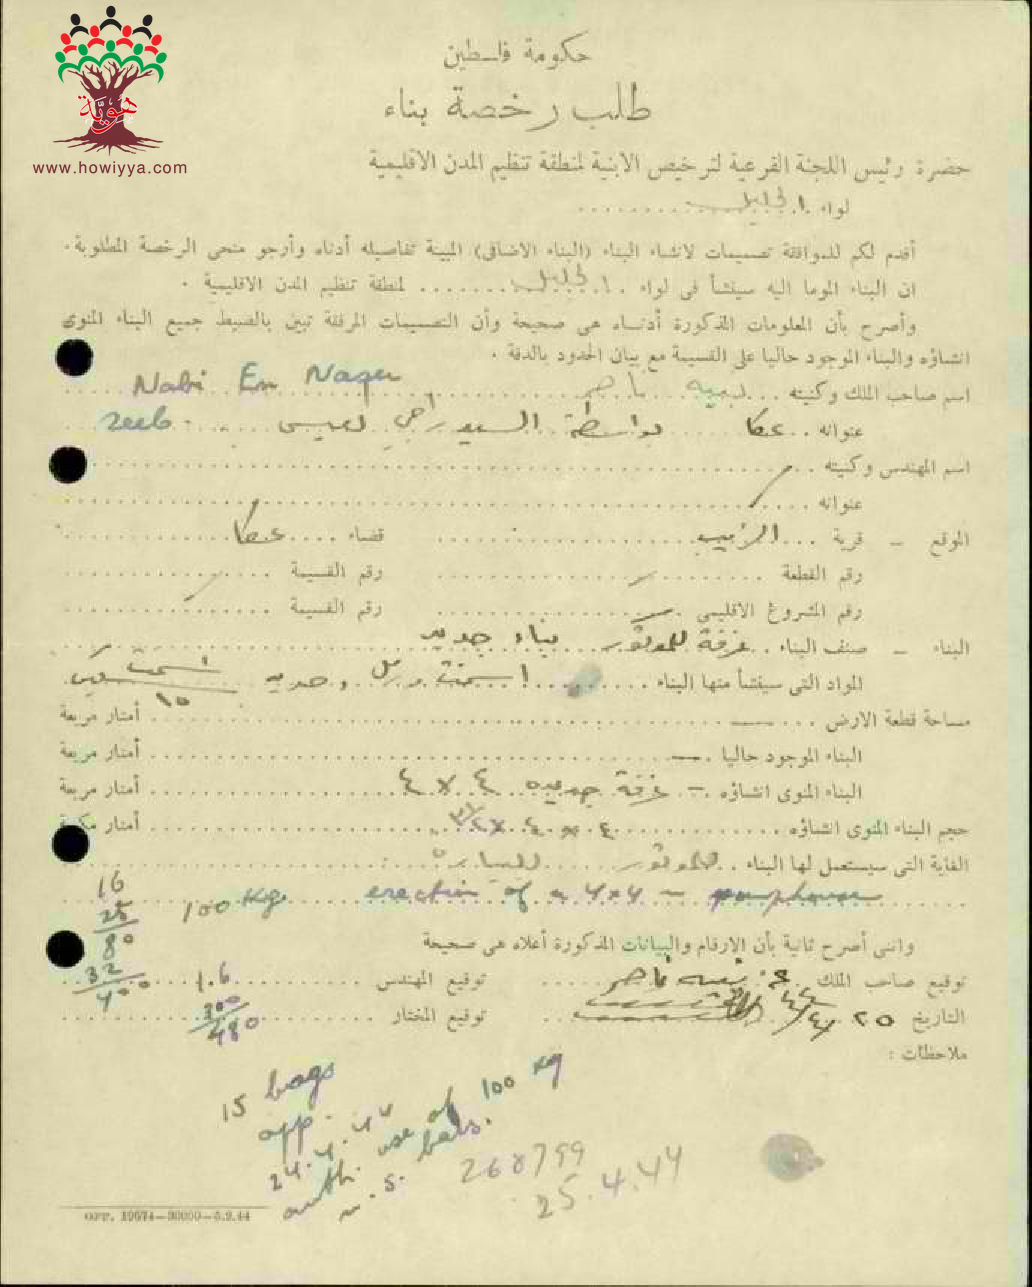 هويّة
www.howiyya.com
حكومة فلسطين
طلب رخصة بناء
حضرة رئيس اللجنة الفرعية لترخيص الابنية لمنطقة تنظيم المدن الاقليمية
لواء الجليل
أقدم لكم للموافقة تصميمات لانشاء البناء (البناء الاضافى) المبينة تفاصيله أدناه وأرجو منحى الرخصة المطلوبة.
ان البناء الموما اليه سينشأ فى لواء الجليل لمنطقة تنظيم المدن الاقليمية.
وأصرح بأن المعلومات المذكورة أدناه هى صحيحة وأن التصميمات المرفقة تبين بالضبط جميع البناء المنوى
انشاؤه والبناء الموجود حاليا على القسيمة مع بيان الحدود بالدقة.
اسم صاحب الملك وكنيته ناصر Nabi En
عنوانه عكا بواسطة السيد راجي Zeeb
اسم المهندس وكنيته
عنوانه
الموقع – قرية الزيب قضاء عكا
رقم القطعة رقم القسيمة
رقم المشروع الاقليمى رقم القسيمة
البناء – صنف البناء غرفة للموتور بناء جديد
المواد التى سينشأ منها البناء اسمنت ورمل وحديد اسمنت ١٥
مساحة قطعة الارض — أمتار مربعة
البناء الموجود حاليا — أمتار مربعة
البناء المنوى انشاؤه – غرفة جديده ٤ × ٤ أمتار مربعة
حجم البناء المنوى انشاؤه ٤ × ٤ × أمتار مكعبة
الغاية التى سيستعمل لها البناء للموتور للبيارة
16
25
80
32
400
100 Kg. erection of a 4x4 m pumphouse
وانى أصرح ثانية بأن الارقام والبيانات المذكورة أعلاه هى صحيحة
توقيع صاحب الملك ناصر توقيع المهندس 1.6
300
480
التاريخ ٢٥/٤/٤٤ توقيع المختار
ملاحظات :
15 bags
app.
24.4.44
auth. use of 100 Kg
m.s. bars.
268799
25.4.44
GPP. 19674—30000—5.2.44